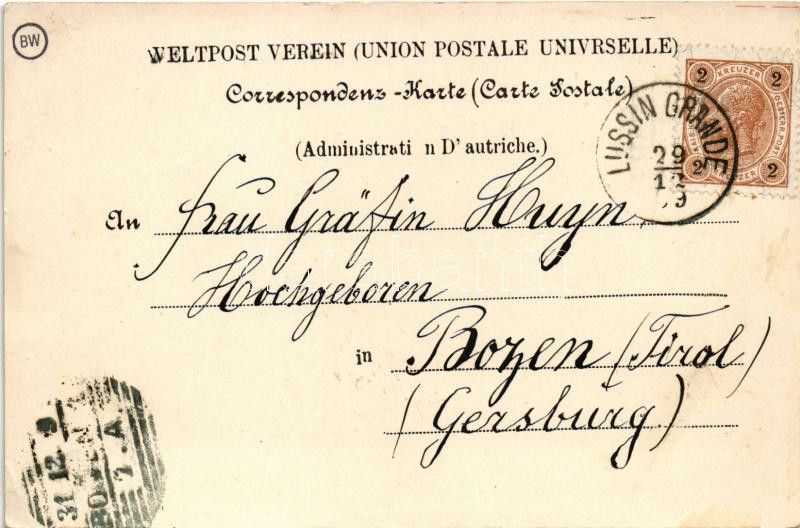 BW
WELTPOST VEREIN (UNION POSTALE UNIVRSELLE)
Correspondenz-Karte (Carte Postale)
(Administrati n D'autriche.)
2 KREUZER 2
OESTERR. POST
2 KREUZER 2
LUSSIN GRANDE
29
12
99
An Frau Gräfin Huyn
Hochgeboren
in Bozen (Tirol)
(Gersburg)
31 12 9
BOZEN
7 A